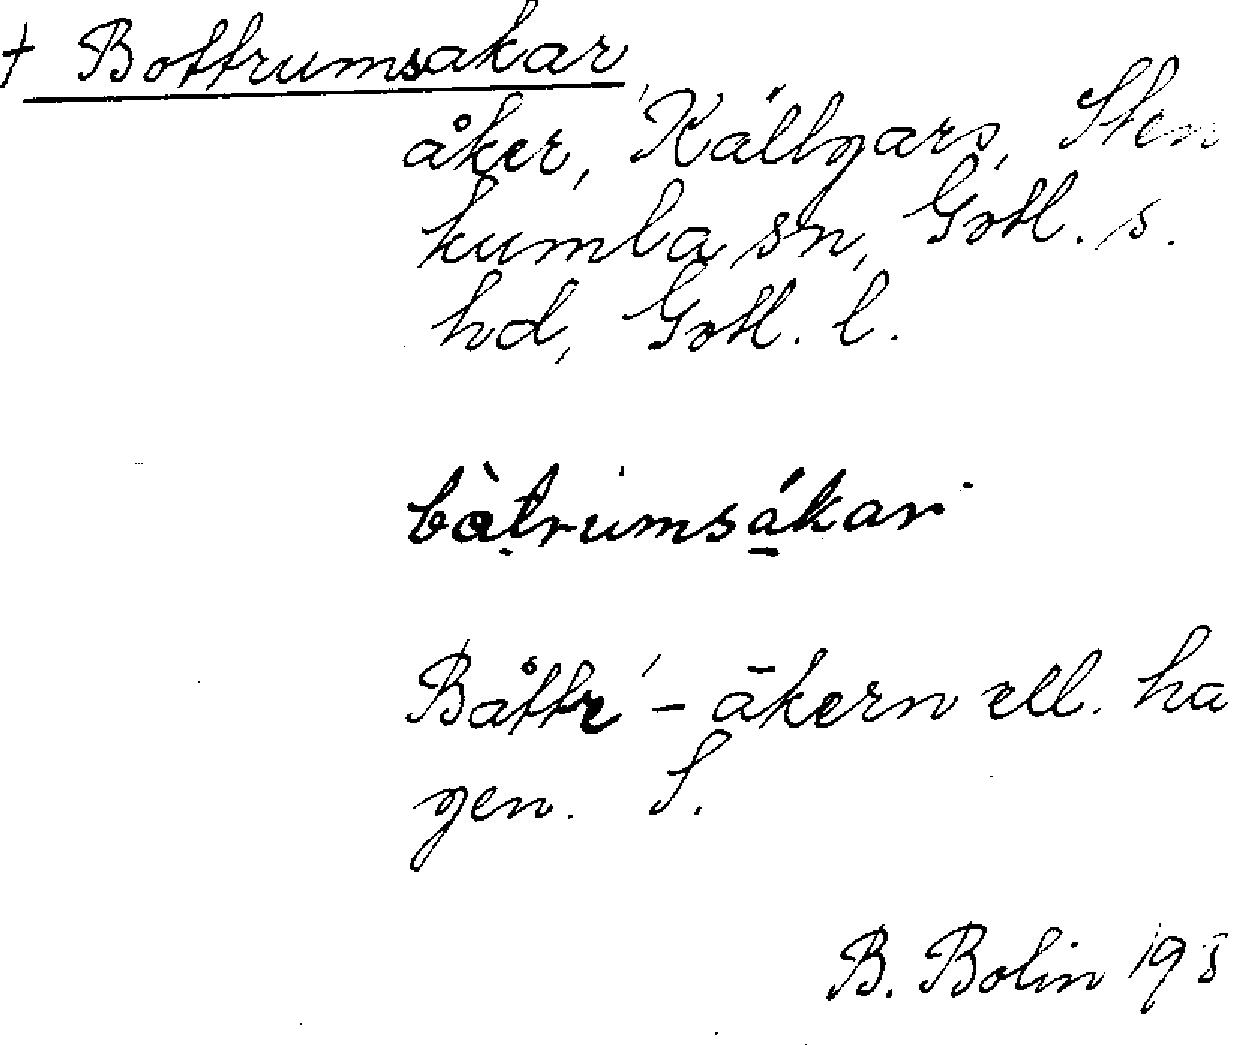 † Bottrumsakar
åker, Källgars, Sten
kumla sn, Gotl. s.
hd, Gotl. l.
bòtrumsákar
Båttr' - åkern ell. ha
gen. S.
B. Bolin 193